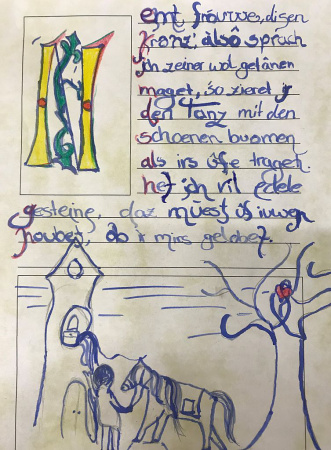 N
emt, frouwe, disen
kranz: alsô sprach
ich zeiner wol getânen
maget, so zieret ir
den Tanz mit den
schoenen buomen
als irs ûfe traget.
het ich vil edele
gesteine, daz müest ûf iuwer
houbet, ob ir mirs gelobet.